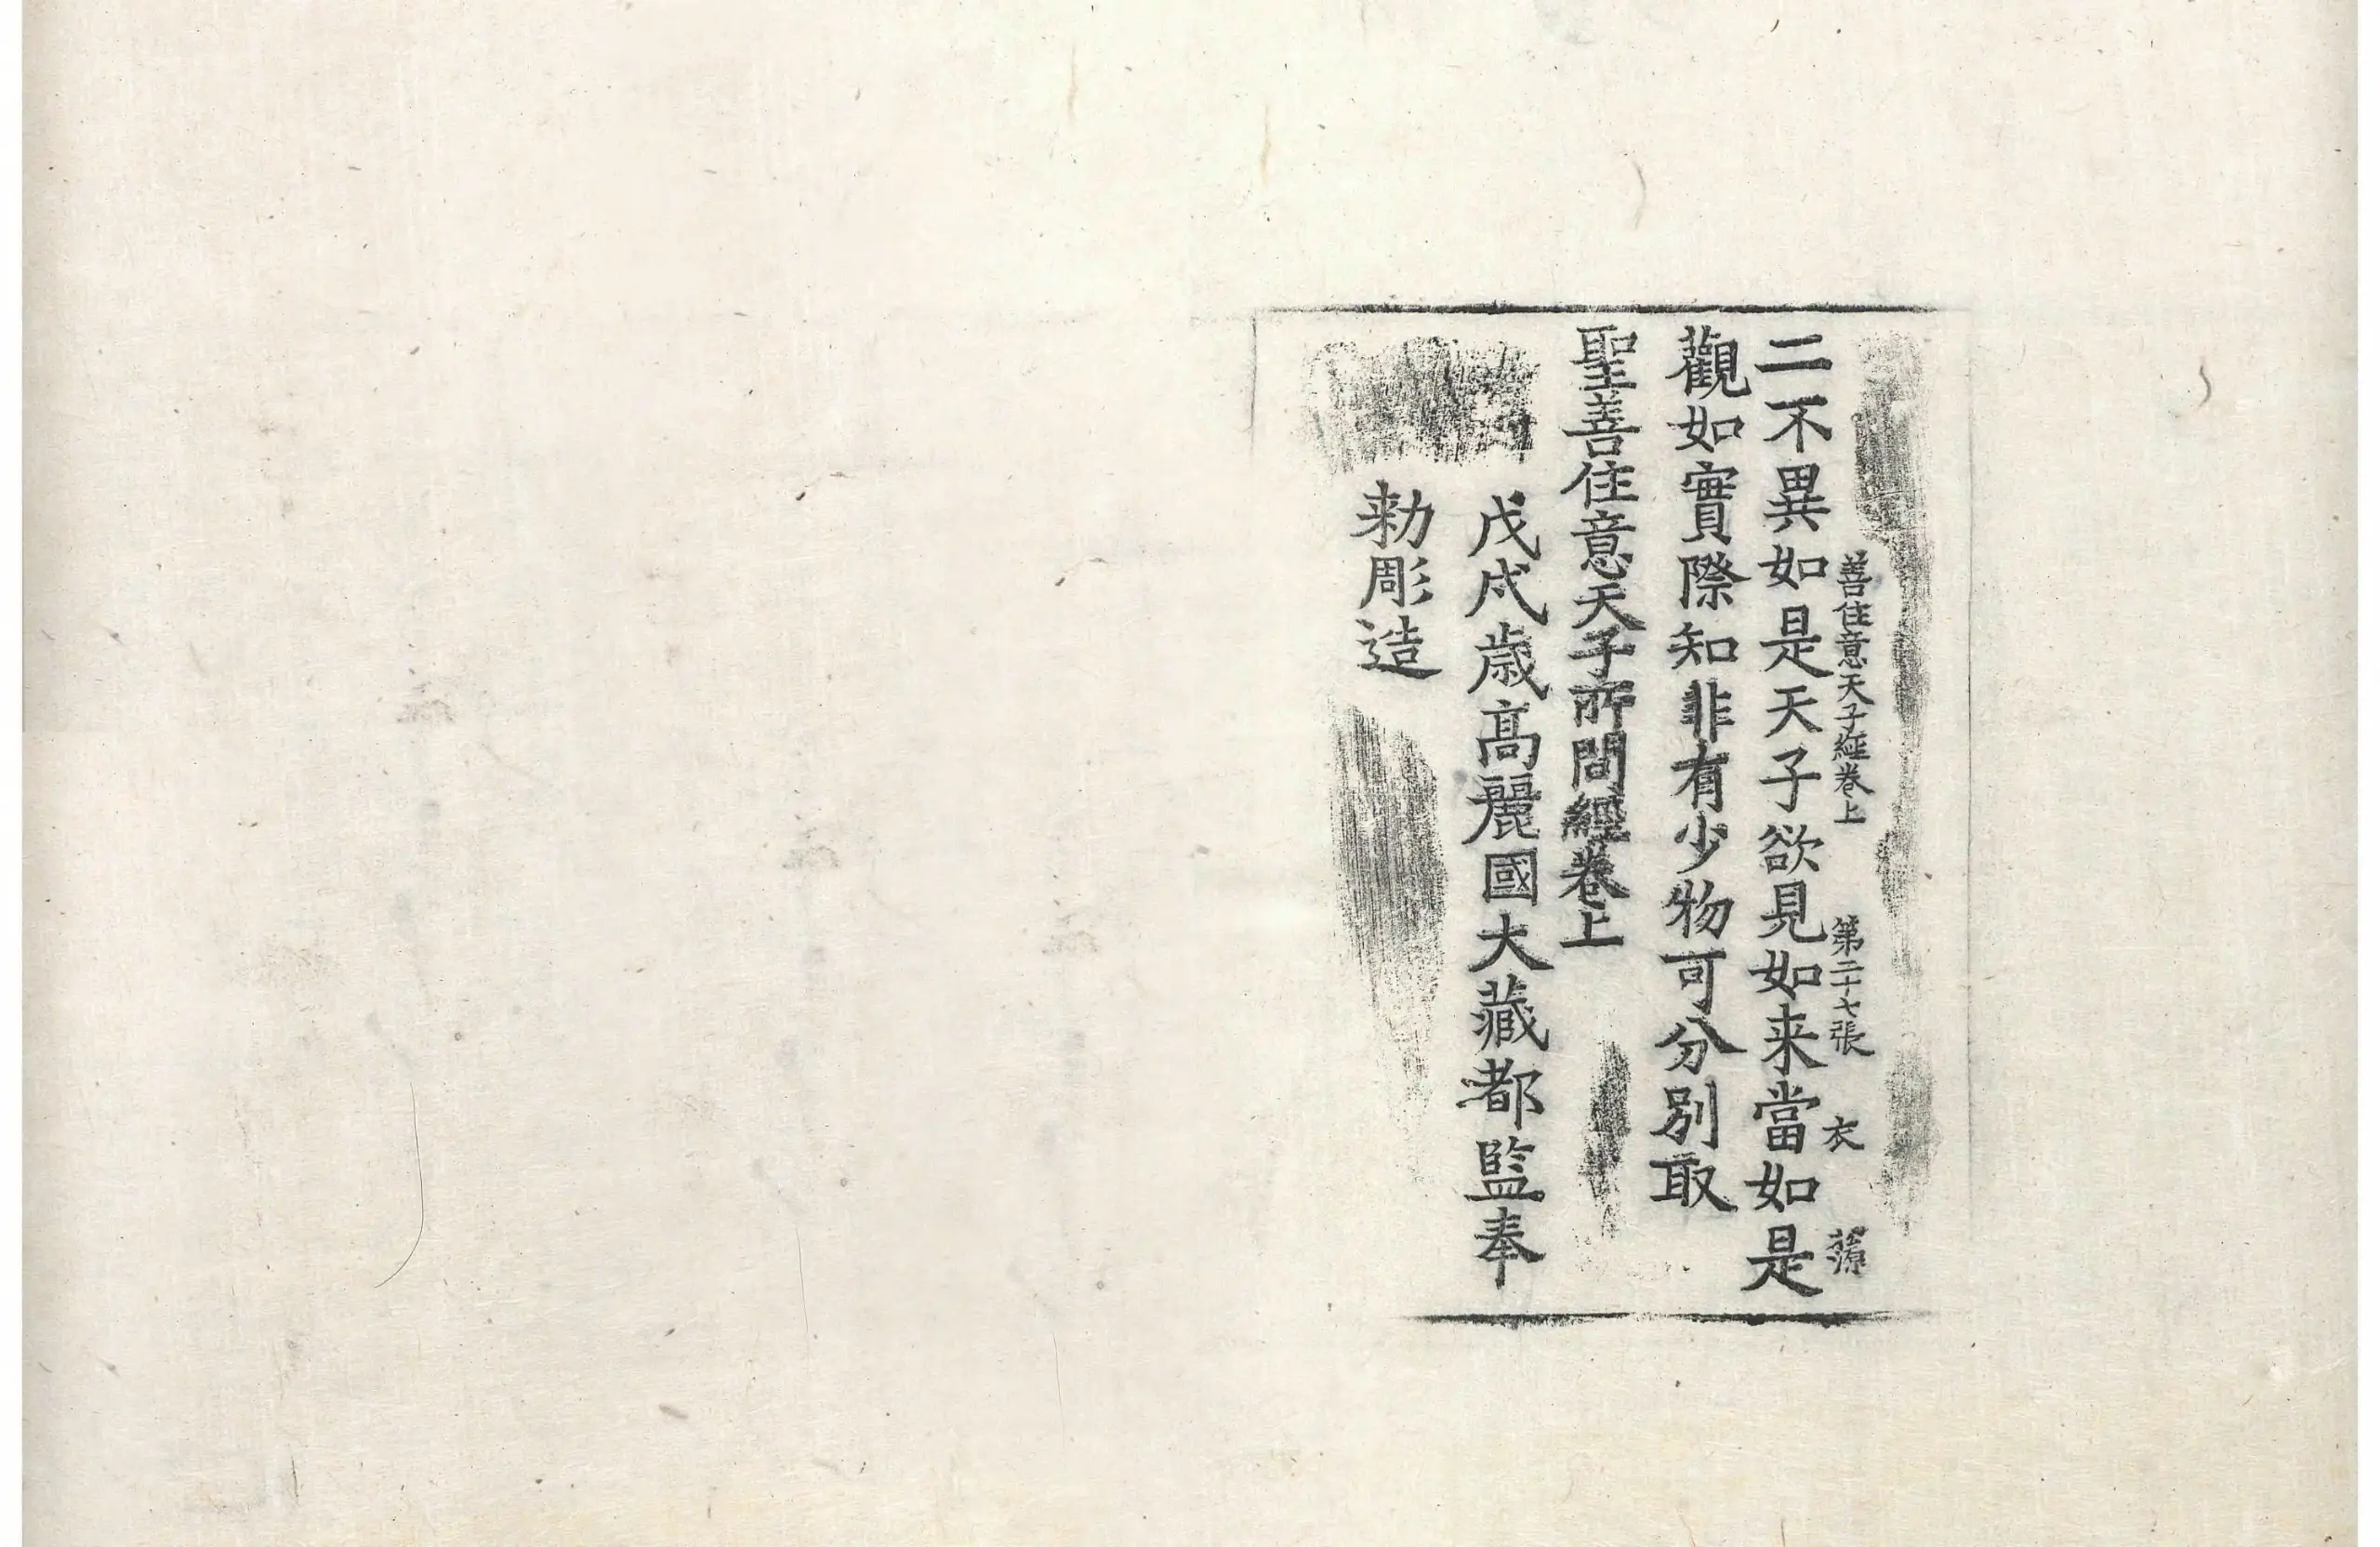 善住意天子經卷上 第二十七張 衣
二不異如是天子欲見如来當如是
觀如實際知非有少物可分別取
聖善住意天子所問經卷上
戊戌歳高麗國大藏都監奉
勑彫造